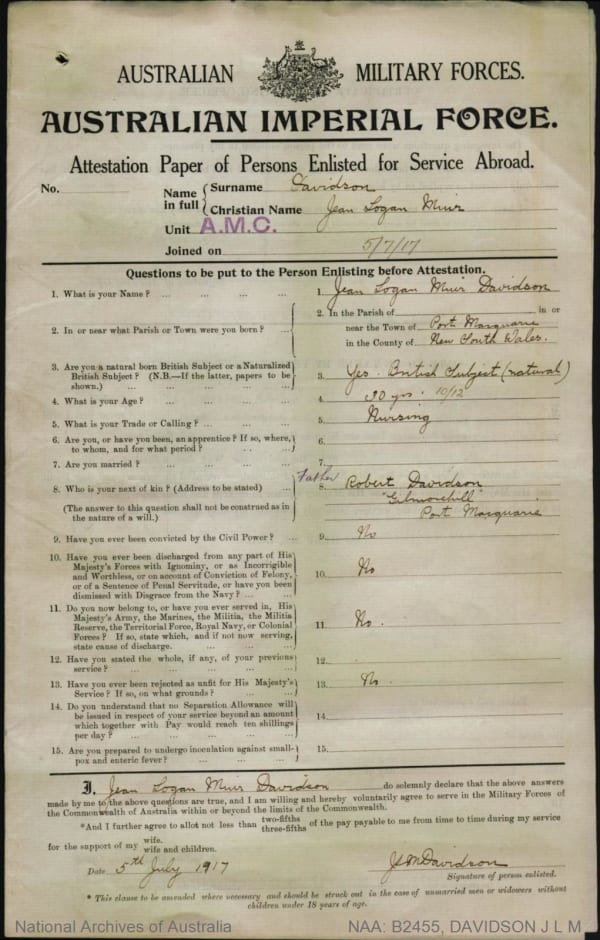 AUSTRALIAN MILITARY FORCES.
AUSTRALIAN IMPERIAL FORCE.
Attestation Paper of Persons Enlisted for Service Abroad.
No.
Name in full { Surname Davidson
Christian Name Jean Logan Muir
Unit A.M.C.
Joined on 5/7/17
Questions to be put to the Person Enlisting before Attestation.
1. What is your Name ? ... ... ... ...
1. Jean Logan Muir Davidson
2. In or near what Parish or Town were you born ? ...
2. In the Parish of in or
near the Town of Port Macquarie
in the County of New South Wales.
3. Are you a natural born British Subject or a Naturalized
British Subject ? (N.B.—If the latter, papers to be
shown.) ... ... ... ...
3. Yes. British Subject (natural)
4. What is your Age ? ... ... ... ...
4. 30 yrs. 10/12
5. What is your Trade or Calling ? ... ... ...
5. Nursing
6. Are you, or have you been, an apprentice ? If so, where,
to whom, and for what period ? ... ...
6.
7. Are you married ? ... ... ... ...
7.
8. Who is your next of kin ? (Address to be stated) ...
(The answer to this question shall not be construed as in
the nature of a will.)
Father
8. Robert Davidson
"Gilmorehill"
Port Macquarie
9. Have you ever been convicted by the Civil Power ? ...
9. No
10. Have you ever been discharged from any part of His
Majesty's Forces with Ignominy, or as Incorrigible
and Worthless, or on account of Conviction of Felony,
or of a Sentence of Penal Servitude, or have you been
dismissed with Disgrace from the Navy ? ... ...
10. No
11. Do you now belong to, or have you ever served in, His
Majesty's Army, the Marines, the Militia, the Militia
Reserve, the Territorial Force, Royal Navy, or Colonial
Forces ? If so, state which, and if not now serving,
state cause of discharge. ... ... ...
11. No.
12. Have you stated the whole, if any, of your previous
service ? ... ... ... ...
12.
13. Have you ever been rejected as unfit for His Majesty's
Service ? If so, on what grounds ? ... ...
13. No.
14. Do you understand that no Separation Allowance will
be issued in respect of your service beyond an amount
which together with Pay would reach ten shillings
per day ? ... ... ... ...
14.
15. Are you prepared to undergo inoculation against small-
pox and enteric fever ? ... ... ...
15.
I, Jean Logan Muir Davidson do solemnly declare that the above answers
made by me to the above questions are true, and I am willing and hereby voluntarily agree to serve in the Military Forces of
the Commonwealth of Australia within or beyond the limits of the Commonwealth.
*And I further agree to allot not less than two-fifths three-fifths of the pay payable to me from time to time during my service
for the support of my wife. wife and children.
Date 5th July 1917
JLM Davidson
Signature of person enlisted.
* This clause to be amended where necessary and should be struck out in the case of unmarried men or widowers without
children under 18 years of age.
National Archives of Australia
NAA: B2455, DAVIDSON J L M